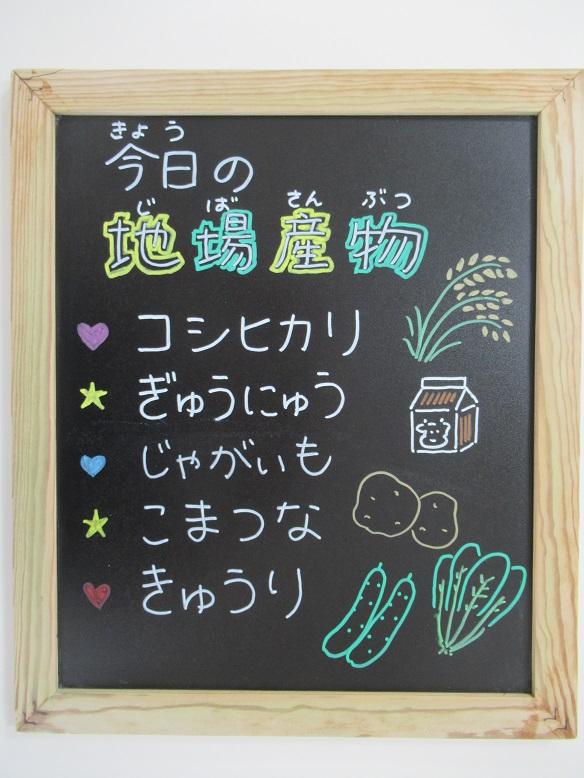 きょう
今日の
じばさんぶつ
地場産物
コシヒカリ
ぎゅうにゅう
じゃがいも
こまつな
きゅうり